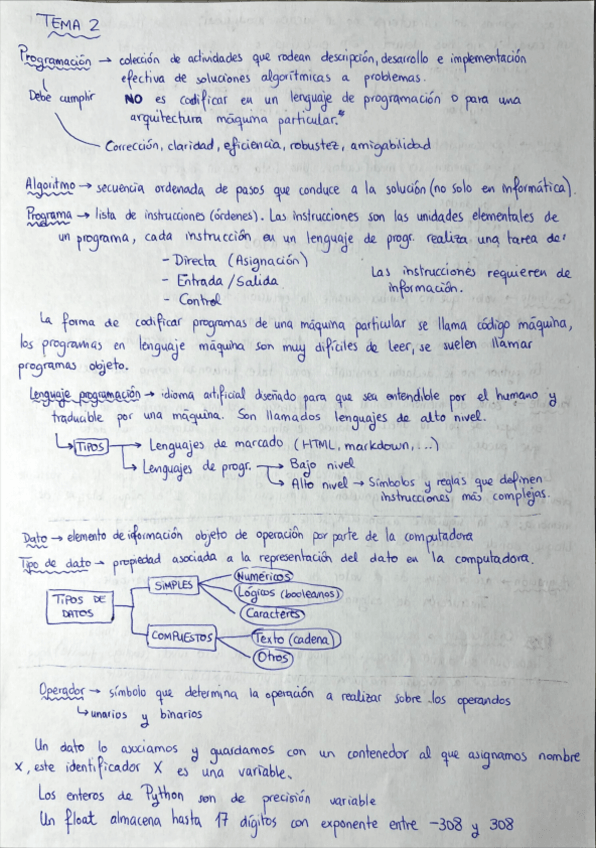 TEMA 2
Programación → colección de actividades que rodean descripción, desarrollo e implementación
efectiva de soluciones algorítmicas a problemas.
Debe cumplir
NO es codificar en un lenguaje de programación o para una
arquitectura máquina particular.*
Corrección, claridad, eficiencia, robustez, amigabilidad
Algoritmo → secuencia ordenada de pasos que conduce a la solución (no solo en informática).
Programa → lista de instrucciones (órdenes). Las instrucciones son las unidades elementales de
un programa, cada instrucción en un lenguaje de progr. realiza una tarea de:
- Directa (Asignación)
- Entrada / Salida
- Control
Las instrucciones requieren de
información.
La forma de codificar programas de una máquina particular se llama código máquina,
los programas en lenguaje máquina son muy difíciles de leer, se suelen llamar
programas objeto.
Lenguaje programación → idioma artificial diseñado para que sea entendible por el humano y
traducible por una máquina. Son llamados lenguajes de alto nivel.
TIPOS → Lenguajes de marcado (HTML, markdown, ...)
Lenguajes de progr. → Bajo nivel
Alto nivel → Símbolos y reglas que definen
instrucciones más complejas.
Dato → elemento de información objeto de operación por parte de la computadora
Tipo de dato → propiedad asociada a la representación del dato en la computadora.
TIPOS DE
DATOS
SIMPLES
Numéricos
Lógicos (booleanos)
Caracteres
COMPUESTOS
Texto (cadena)
Otros
Operador → símbolo que determina la operación a realizar sobre los operandos
↳ unarios y binarios
Un dato lo asociamos y guardamos con un contenedor al que asignamos nombre
X, este identificador X es una variable.
Los enteros de Python son de precisión variable
Un float almacena hasta 17 dígitos con exponente entre -308 y 308